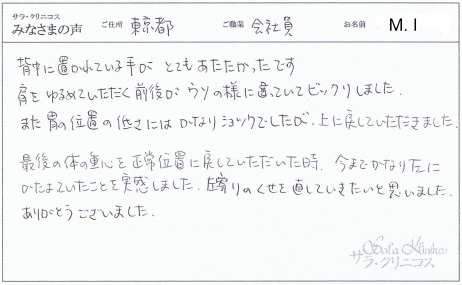 サラ・クリニコス
みなさまの声 ご住所 東京都 ご職業 会社員 お名前 M.I
背中に置かれている手が とてもあたたかったです
肩をゆるめていただく前後が ウソの様に違っていてビックリしました.
また胃の位置の低さには かなりショックでしたが、上に戻していただきました.
最後の体の重心を正常位置に戻していただいた時、今までかなり左に
かたよっていたことを実感しました. 左寄りのくせを直していきたいと思いました.
ありがとうございました.
Sala Klinikos
サラ・クリニコス